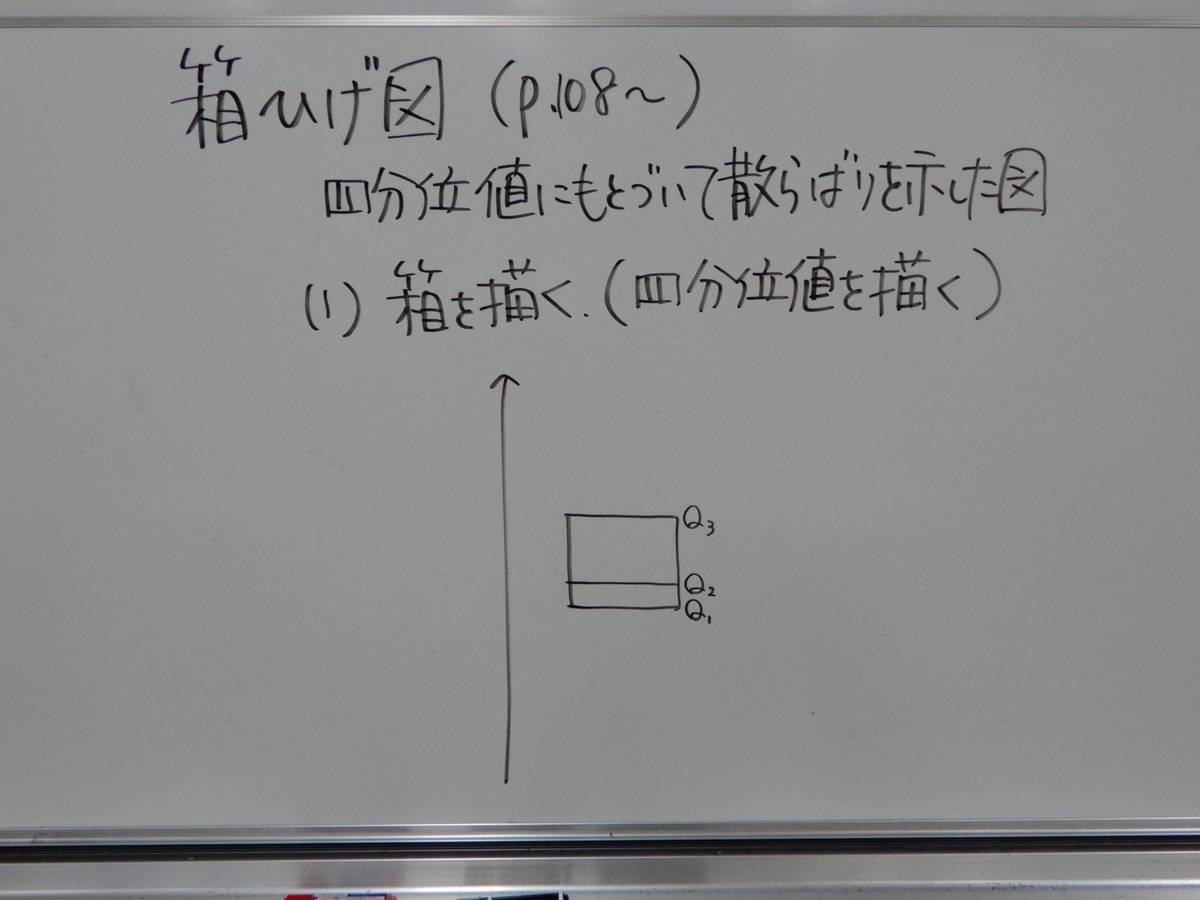 箱ひげ図 (p.108～)
四分位値にもとづいて散らばりを示した図
(1) 箱を描く.(四分位値を描く)
Q3
Q2
Q1